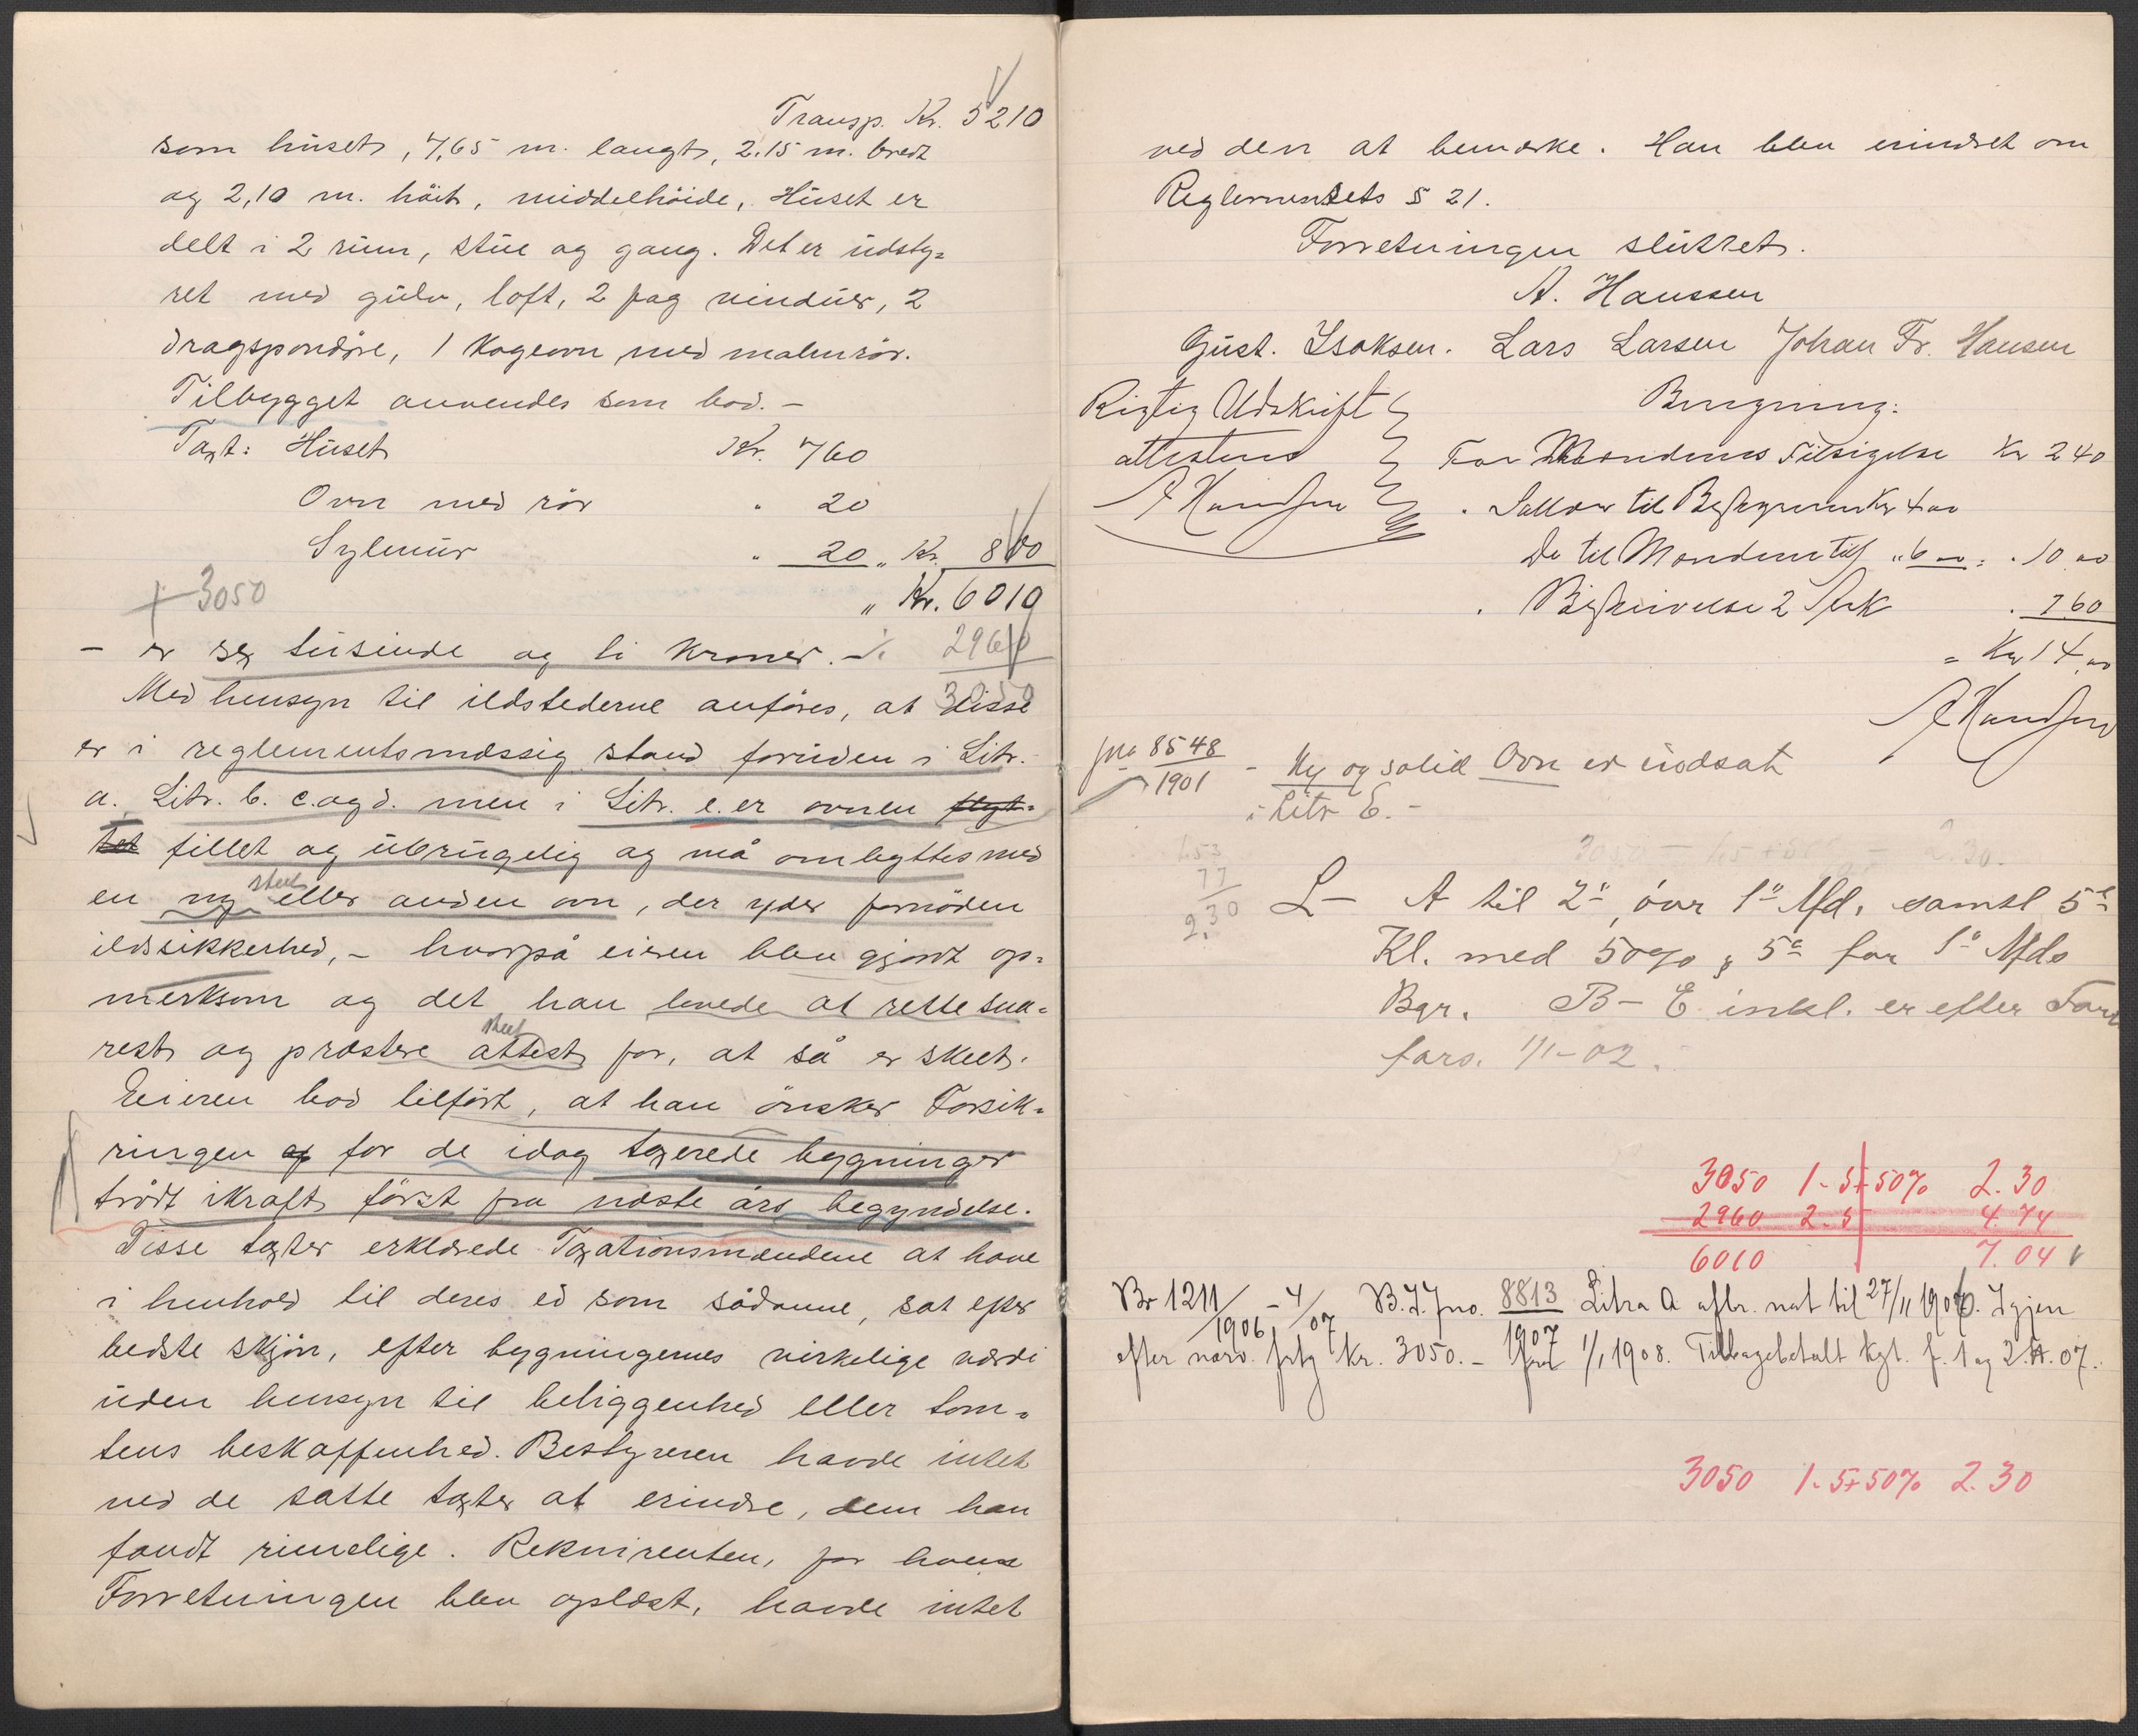 Transp. Kr. 5210
som huset, 7,65 m. langt, 2.15 m. bredt
og 2,10 m. höit, middelhöide, Huset er
delt i 2 rum, stue og gang. Det er udsty-
ret med gulv, loft, 2 fag vinduer, 2
dragspondöre, 1 Kogeovn med malmrör.
Tilbygget anvendes som bod. -
Taxt: Huset Kr. 760
Ovn med rör " 20
Sylmur " 20 " Kr. 800
+ 3050
" Kr. 6010
- er sex tusinde og ti Kroner. - ./. 2960
3050
Med hensyn til ildstederne anföres, at disse
er i reglementsmæssig stand foruden i Litr.
a. Litr. b. c. og d. men i Litr. e. er ovnen flyt-
tet fillet og ubrugelig og må ombyttes med
en ny eller anden ovn, der yder fornöden
ildssikkerhed, - hvorpå eieren blev gjort op-
merksom og det han lovede at rette sna-
rest og præstere attest for, at så er skeet.
Eieren bad tilfört, at han önsker Forsik-
ringen af for de idag taxerede bygninger
trådt ikraft först fra næste års begyndelse.
Disse taxter erklærede Taxationsmændene at have
i henhold til deres ed som sådanne, sat efter
bedste skjön, efter bygningernes virkelige værdi
uden hensyn til beliggenhed eller tom-
tens beskaffenhed. Bestyreren havde intet
ved de satte taxter at erindre, dem han
fandt rimelige. Rekvirenten, for hvem
Forretningen blev oplæst, havde intet
ved den at bemærke. Han blev erindret om
Reglementets § 21.
Forretningen sluttet.
A. Hanssen
Gust. Isaksen. Lars Larsen Johan Fr. Hansen
Rigtig Udskrift Beregning:
attesteres For Mændenes Tilsigelse Kr 240
A Hanssen
til
De til Mændene till " 6 00 = " 10.00
" Beskrivelse 2 Ark " 1 60
= Kr 14.00
A Hanssen
jno 8548
1901
- Ny og solid Ovn er indsat
i Litr E. -
3050 - 1.5 + 50% - 2.30.
1.53
77
2.30
L - A til 2", over 1" Afd. samt 5"
Kl. med 50% & 5" for 1" Afds
Bgr. B - E inkl. er efter
1/1 - 02.
3050 1. 5 + 50% 2. 30
2960 2. 5 4. 74
6010 7. 04
Br 1211/1906 - 4/07 B.T. Jno. 8813/1907 Litra A afbr. nat til 27/11 1906. Igjen
efter nærv. frtg Kr. 3050. - fra 1/1 1908. Tilbagebetalt kgt. f. 1 og 2. H. 07.
3050 1. 5 + 50% 2. 30